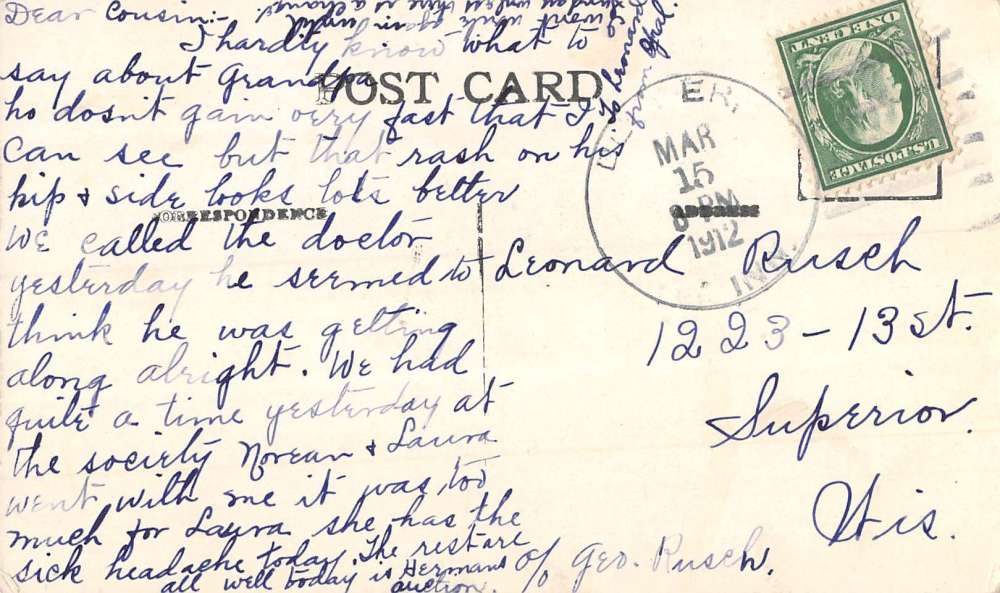 Dear Cousin:-
I hardly know what to
say about Grandpa
ho dosnt gain very fast that I
can see but that rash on his
hip & side looks lots better
We called the doctor
yesterday he seemed to
think he was getting
along alright. We had
quite a time yesterday at
the society Norean & Laura
went with me it was too
much for Laura she has the
sick headache today. The rest are
all well today is Hermans
auction.
so wont write again until
unless there is a change.
to Leonard
from Opal.
POST CARD
CORRESPONDENCE
ADDRESS
ER,
MAR
15
8 PM
1912
U.S. POSTAGE
ONE CENT
Leonard Rusch
1223-13 st.
Superior.
Wis.
c/o Geo. Rusch.